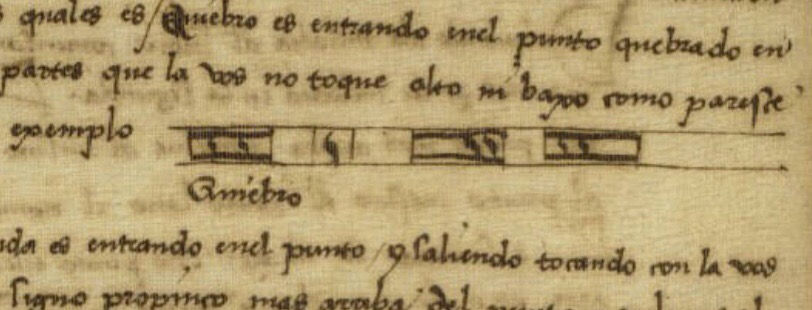 quales es / Quiebro es entrando enel punto quebrado en
partes que la vos no toque alto ni baxo como paresce
exemplo
Quiebro
es entrando enel punto / y saliendo tocando con la vos
signo propinco mas